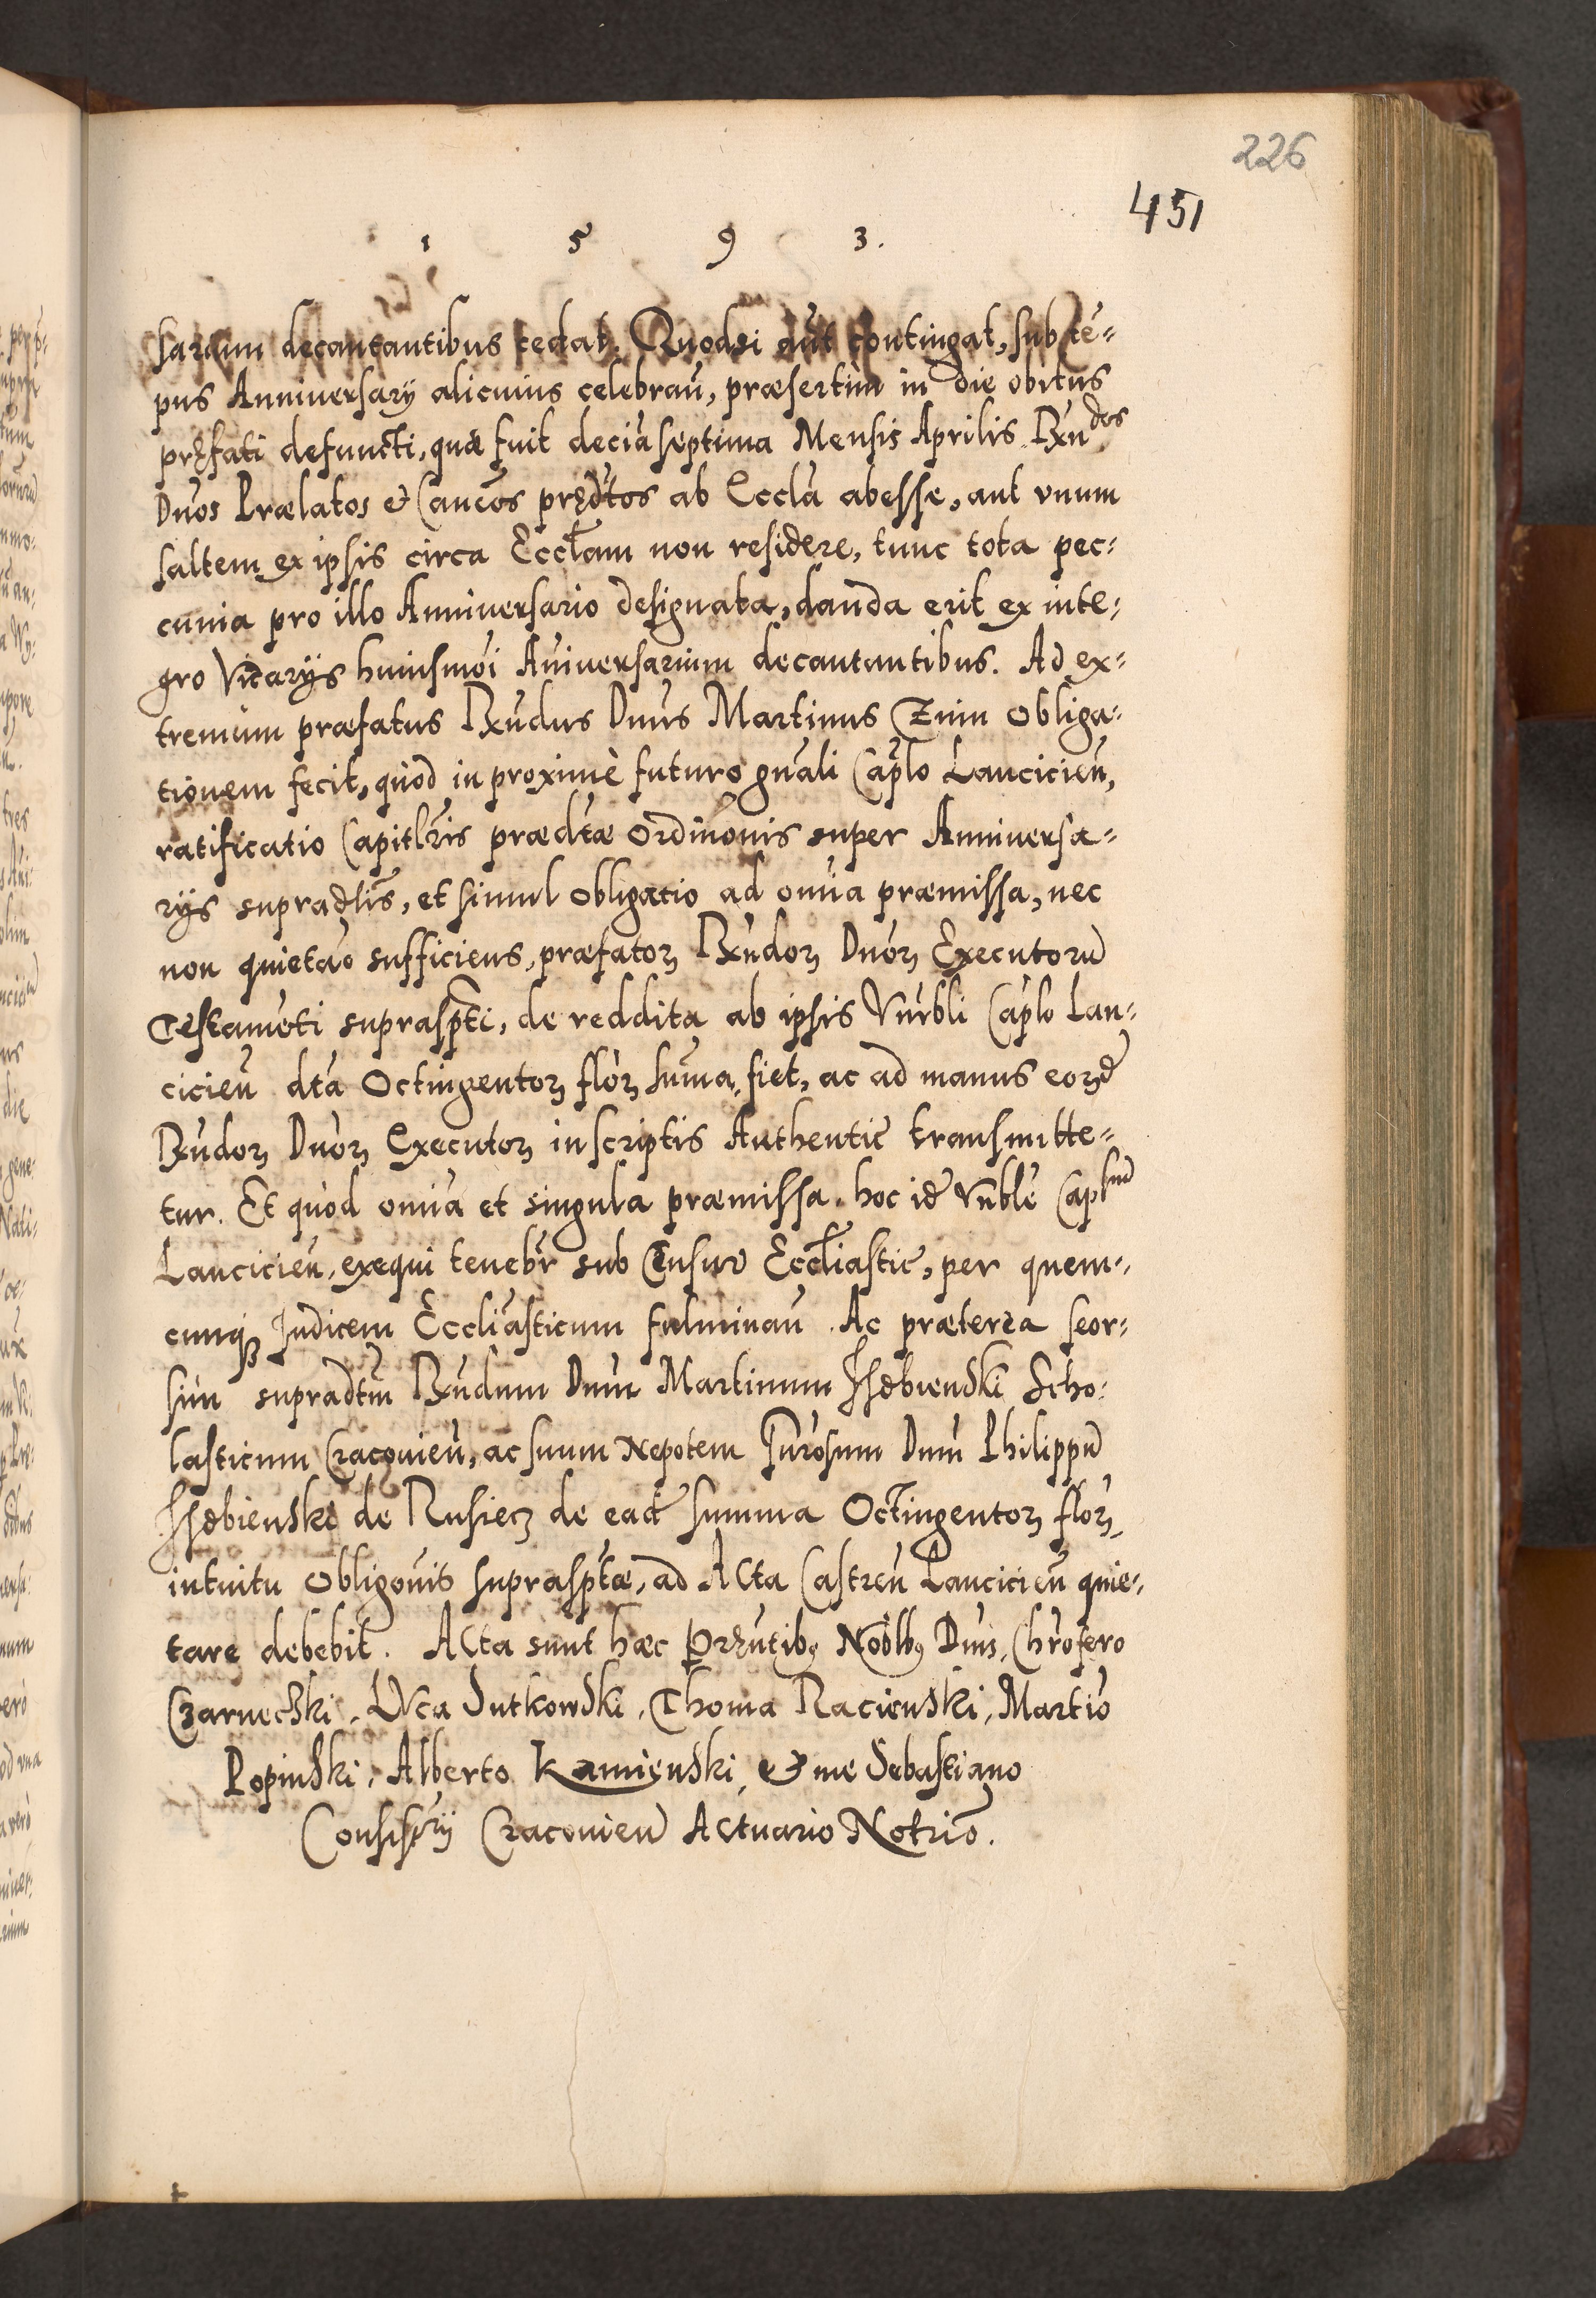 226
451
1 5 9 3.
sarium decantantibus cedat. Quodsi aūt contingat, sub tē=
pus Anniversarij alicuius celebrań, præsertim in die obitus
pręfati defuncti, quæ fuit deciā septima Mensis Aprilis Rṅdos
Dnos Prælatos et Cancōs prędtos ab Eccłā abesse, aut vnum
saltem ex ipsis circa Eccłam non residere, tunc tota pec=
cunia pro illo Anniversario designata, danda erit ex inte=
gro Vicarijs huiusmōi Aniversarium decantantibus. Ad ex=
tremum præfatus Rńdus Dnus Martinus Czuin obliga=
tionem fecit, quod in proximè futuro gnāli Capłō Lancicień,
ratificatio Capitłris prædtæ ordinōnis super Anniversa=
rijs supradtis, et simul obligatio ad omīa præmissa, nec
non quietāo sufficiens, præfatoꝝ Rńdoꝝ Dnoꝝ Executorū
Testamēti suprasp̄ti, de reddita ab ipsis Vnrbli Capłō Lan=
cicień dtā Octingentoꝝ floꝝ suma, fiet, ac ad manus eoꝝd
Rńdoꝝ Dnoꝝ Executoꝝ in scriptis Authentic transmitte=
tur. Et quod omīa et singula præmissa, hoc id Vnble Capłum
Lancicień, exequi tenebr sub Censur Eccłiastic, per quem=
cunqꝫ Judicem Eccłiasticum fulminań. Ac præterea seor=
sim supradtm Rńdum Dnum Martinum Izdbienski Scho=
lasticum Cracovień, ac suum Nepotem Gńrosum Dnum Philippū
Izdbienski de Rusiecz de ead summa Octingentoꝝ floꝝ,
intuitu obligōnis suprasptæ, ad Acta Castreń Lancicień quie=
tare debebit. Acta sunt hæc Pręntibꝰ Nobłbꝰ Dnis, Chrofero
Czarnecki, Luca Sutkowski, Thoma Racienski, Martīo
Popinski, Alberto Kamienski, et me Sebastiano
Consisrij Cracovień Actuario Notriō.